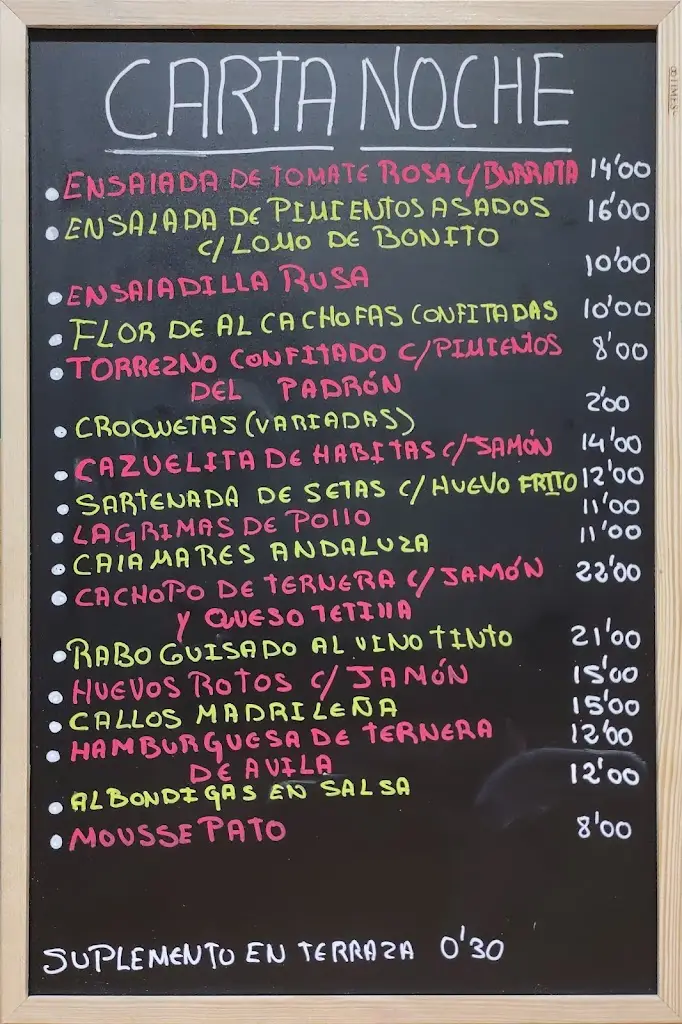 CARTA NOCHE
• ENSALADA DE TOMATE ROSA C/ BURRATA 14'00
• ENSALADA DE PIMIENTOS ASADOS 16'00
C/ LOMO DE BONITO
• ENSALADILLA RUSA 10'00
• FLOR DE ALCACHOFAS CONFITADAS 10'00
• TORREZNO CONFITADO C/ PIMIENTOS 8'00
DEL PADRÓN
• CROQUETAS (VARIADAS) 2'00
• CAZUELITA DE HABITAS C/ JAMÓN 14'00
• SARTENADA DE SETAS C/ HUEVO FRITO 12'00
• LAGRIMAS DE POLLO 11'00
• CALAMARES ANDALUZA 11'00
• CACHOPO DE TERNERA C/ JAMÓN 22'00
Y QUESO TETILLA
• RABO GUISADO AL VINO TINTO 21'00
• HUEVOS ROTOS C/ JAMÓN 15'00
• CALLOS MADRILEÑA 15'00
• HAMBURGUESA DE TERNERA 12'00
DE AVILA
• ALBONDIGAS EN SALSA 12'00
• MOUSSE PATO 8'00
SUPLEMENTO EN TERRAZA 0'30